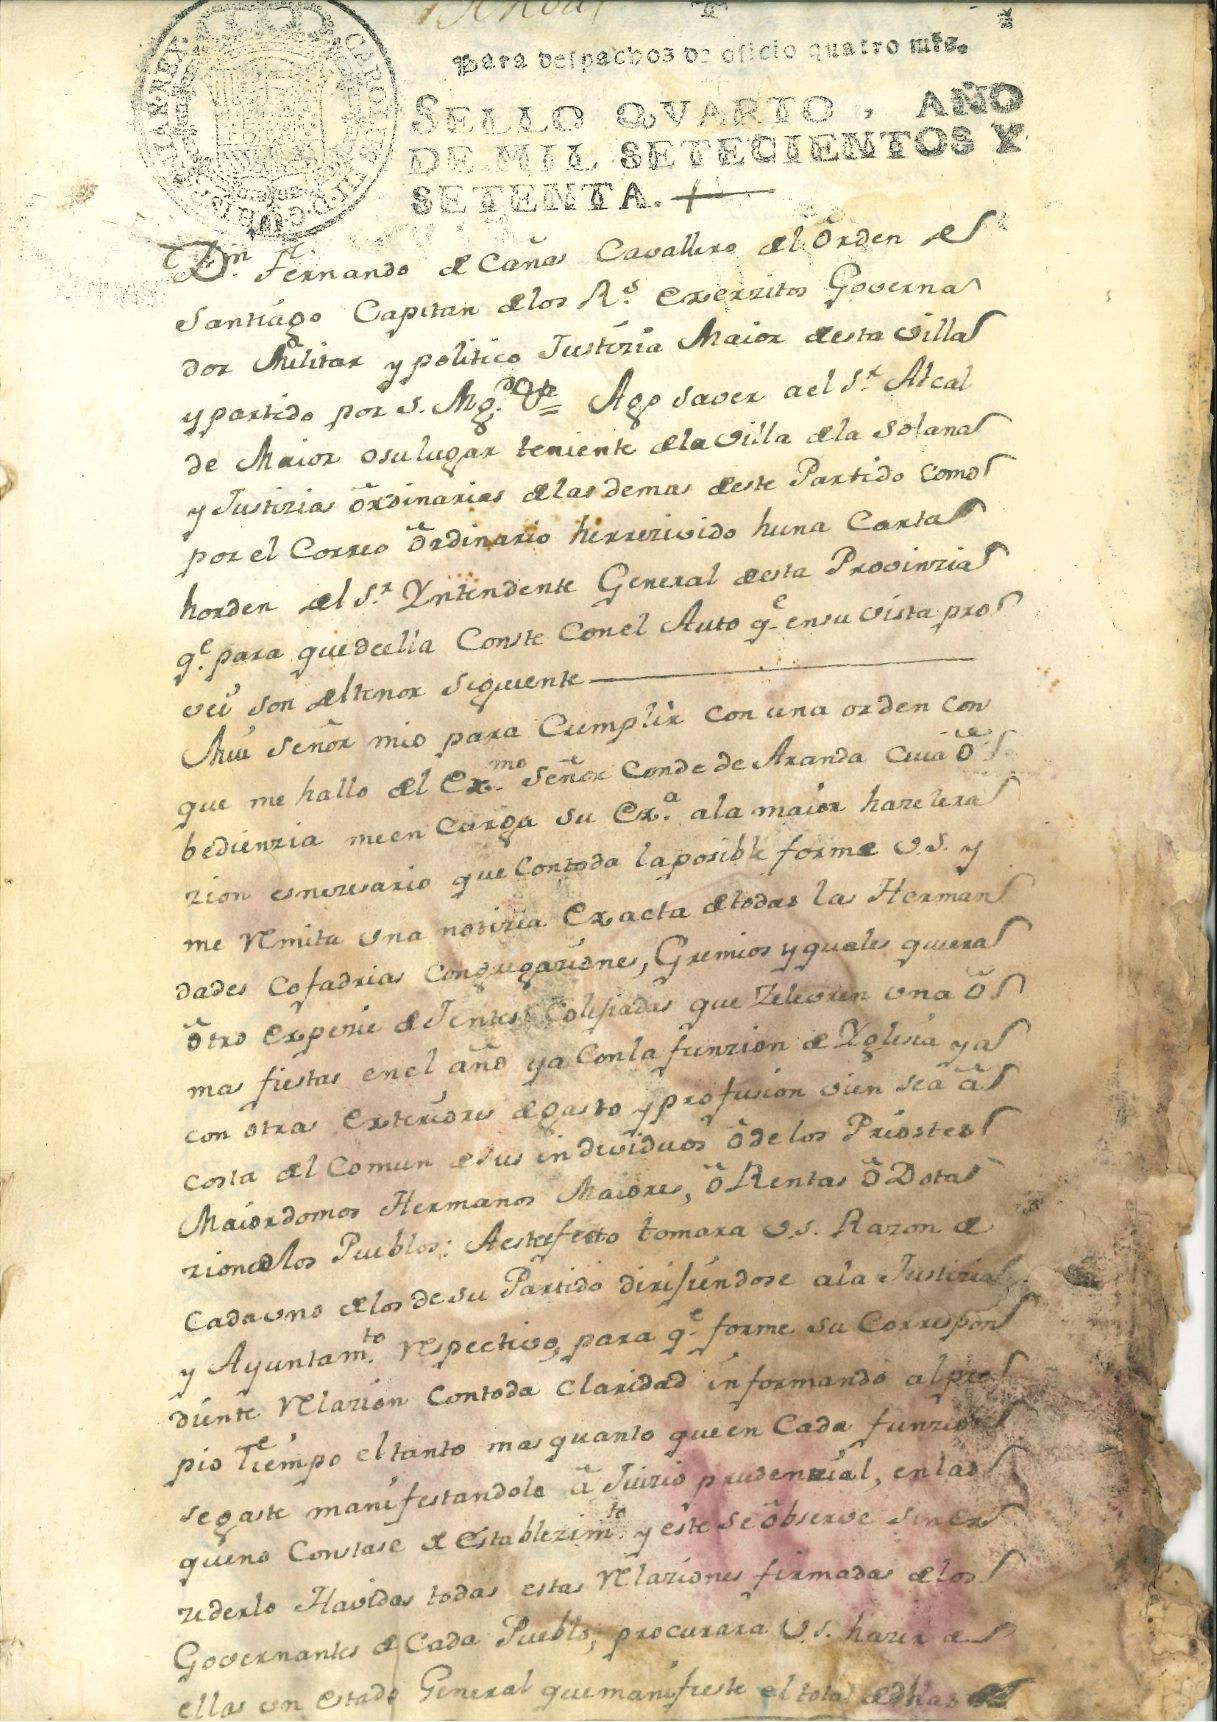 Para despachos de oficio quatro mrs.
SELLO QVARTO, AÑO
DE MIL SETECIENTOS Y
SETENTA.
Dn. Fernando de Cañas Cavallero del Orden de
Santiago Capitan de los Rs. exerzitos Governa
dor Militar y politico Justizia Maior desta villa
y partido por S. Mg. Ago saver a el Sr. Alcal
de Maior o su lugar teniente de la villa de la Solana
y Justizias ordinarias de las demas deste Partido como
por el Correo ordinario herrezivido huna Carta
horden del Sr. Yntendente General desta Provinzia
qe. para que de ella Conste Con el Auto qe. en su vista pro
vei son del tenor siguiente
Mui señor mio para Cumplir con una orden con
que me hallo del Exmo. Señor Conde de Aranda Cuia o
bedienzia me en Carga su Exa. a la maior hazelera
zion es nezesario que con toda la posible forme V.S. y
me remita una notizia Exacta de todas las Herman
dades Cofadrias Congregaziones, Gremios y quales quiera
otro expezie de Jentes Colejiadas que Zelevren una o
mas fiestas en el año ya Con la funzion de Yglesia ya
con otras exteriores de gasto y profusion vien sea a
costa del Comun de sus individuos o de los Priostes
Maiordomos Hermanos Maiores, o Rentas o Dota
ziones de los Pueblos: A este fecto tomara V.S. Razon de
Cada uno de los de su Partido dirijiendose a la Justizia
y Ayuntamto. respectivo, para qe. forme su Correspon
diente relazion Con toda Claridad informando al pro
pio Tiempo el tanto mas quanto que en Cada funzion
se gaste manifestandolo a Juizio prudenzial, en las
que no Constase de establezimto. y este se observe sin ex
zederlo Havidas todas estas relaziones firmadas de los
Governantes de Cada Pueblo, procurara V.S. hazer de
ellas un estado General que manifieste el total de dhas